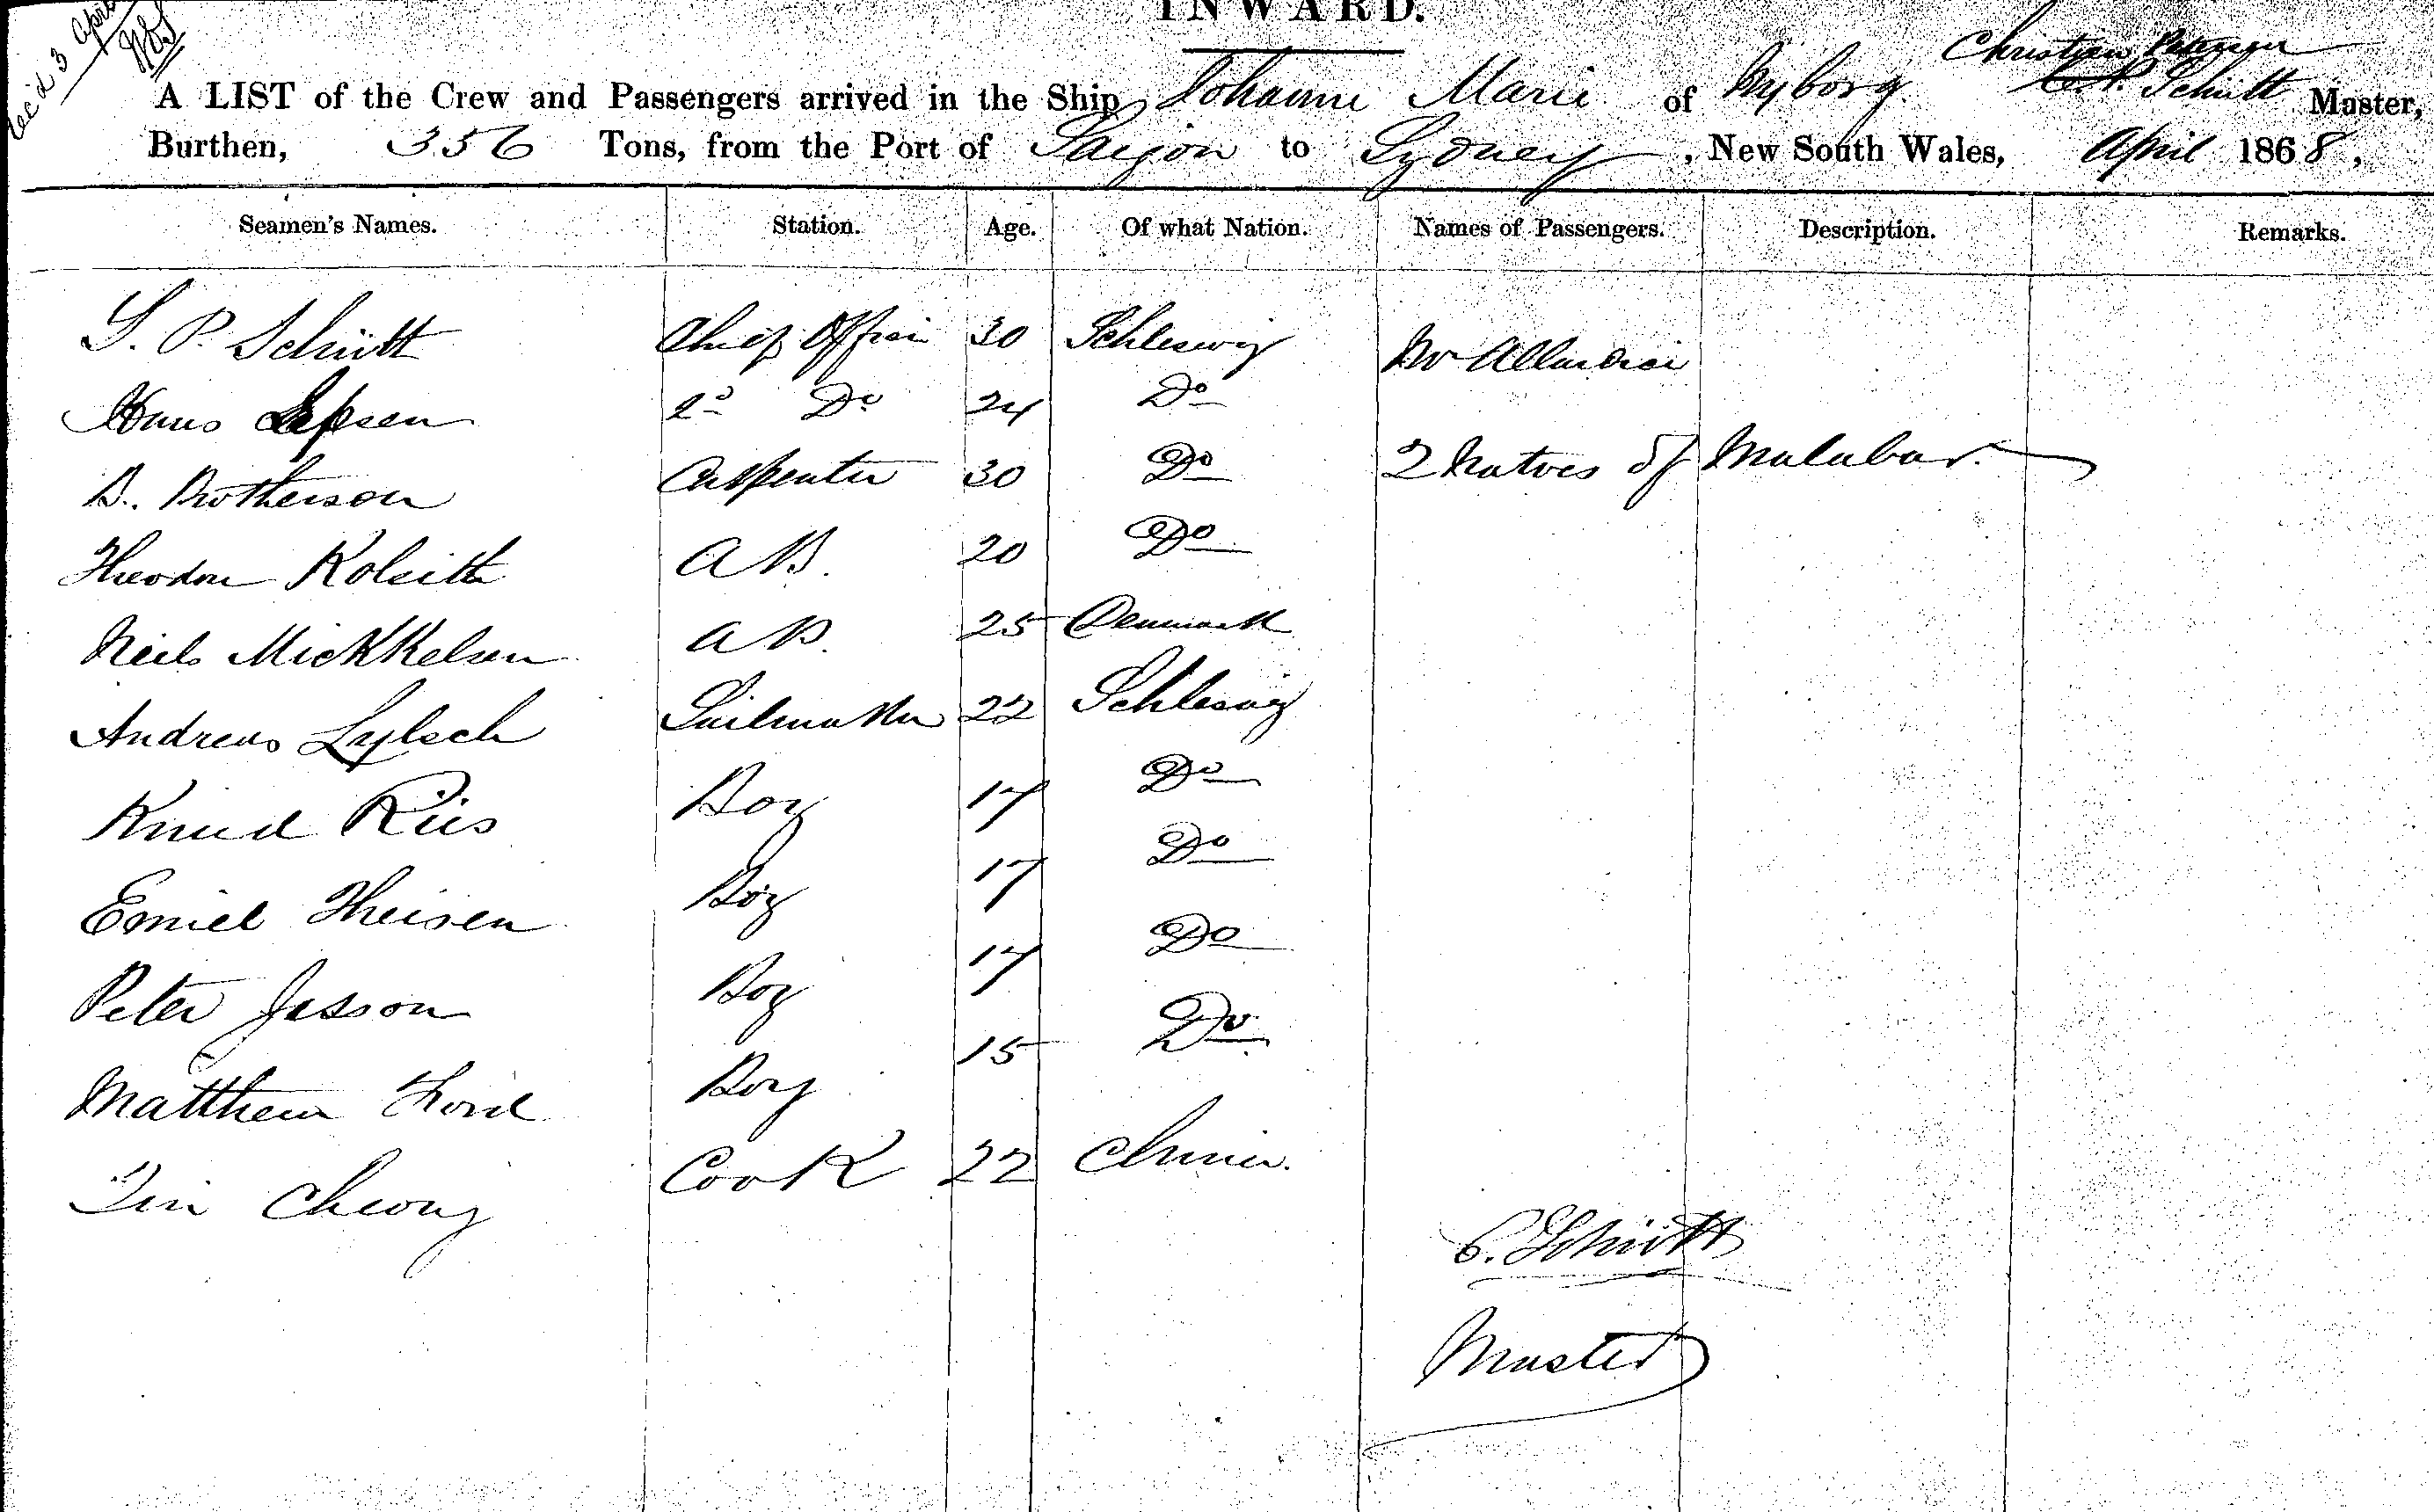 INWARD.
Rec'd 3 April
Christian Petersen
A LIST of the Crew and Passengers arrived in the Ship Johanne Marie of Nyborg C. P. Schütt Master,
Burthen, 356 Tons, from the Port of Saigon to Sydney, New South Wales, April 1868,
Seamen's Names. Station. Age. Of what Nation. Names of Passengers. Description. Remarks.
S. P. Schütt Chief Officer 30 Schleswig Mr
Hans Jepsen 2d Do 24 Do
B. Brotherson Carpenter 30 Do 2 Natives of Malabar.
Theodor Kolsith A B. 20 Do
Neils Mickkelsen A B. 25 Denmark
Andreas Lylsch Sailmaker 22 Schleswig
Knud Riis Boy 17 Do
Emiel Theisen Boy 17 Do
Peter Jesson Boy 17 Do
Matthew Boy 15 Do
Tin Cheong Cook 22 China.
C. Schütt
Master